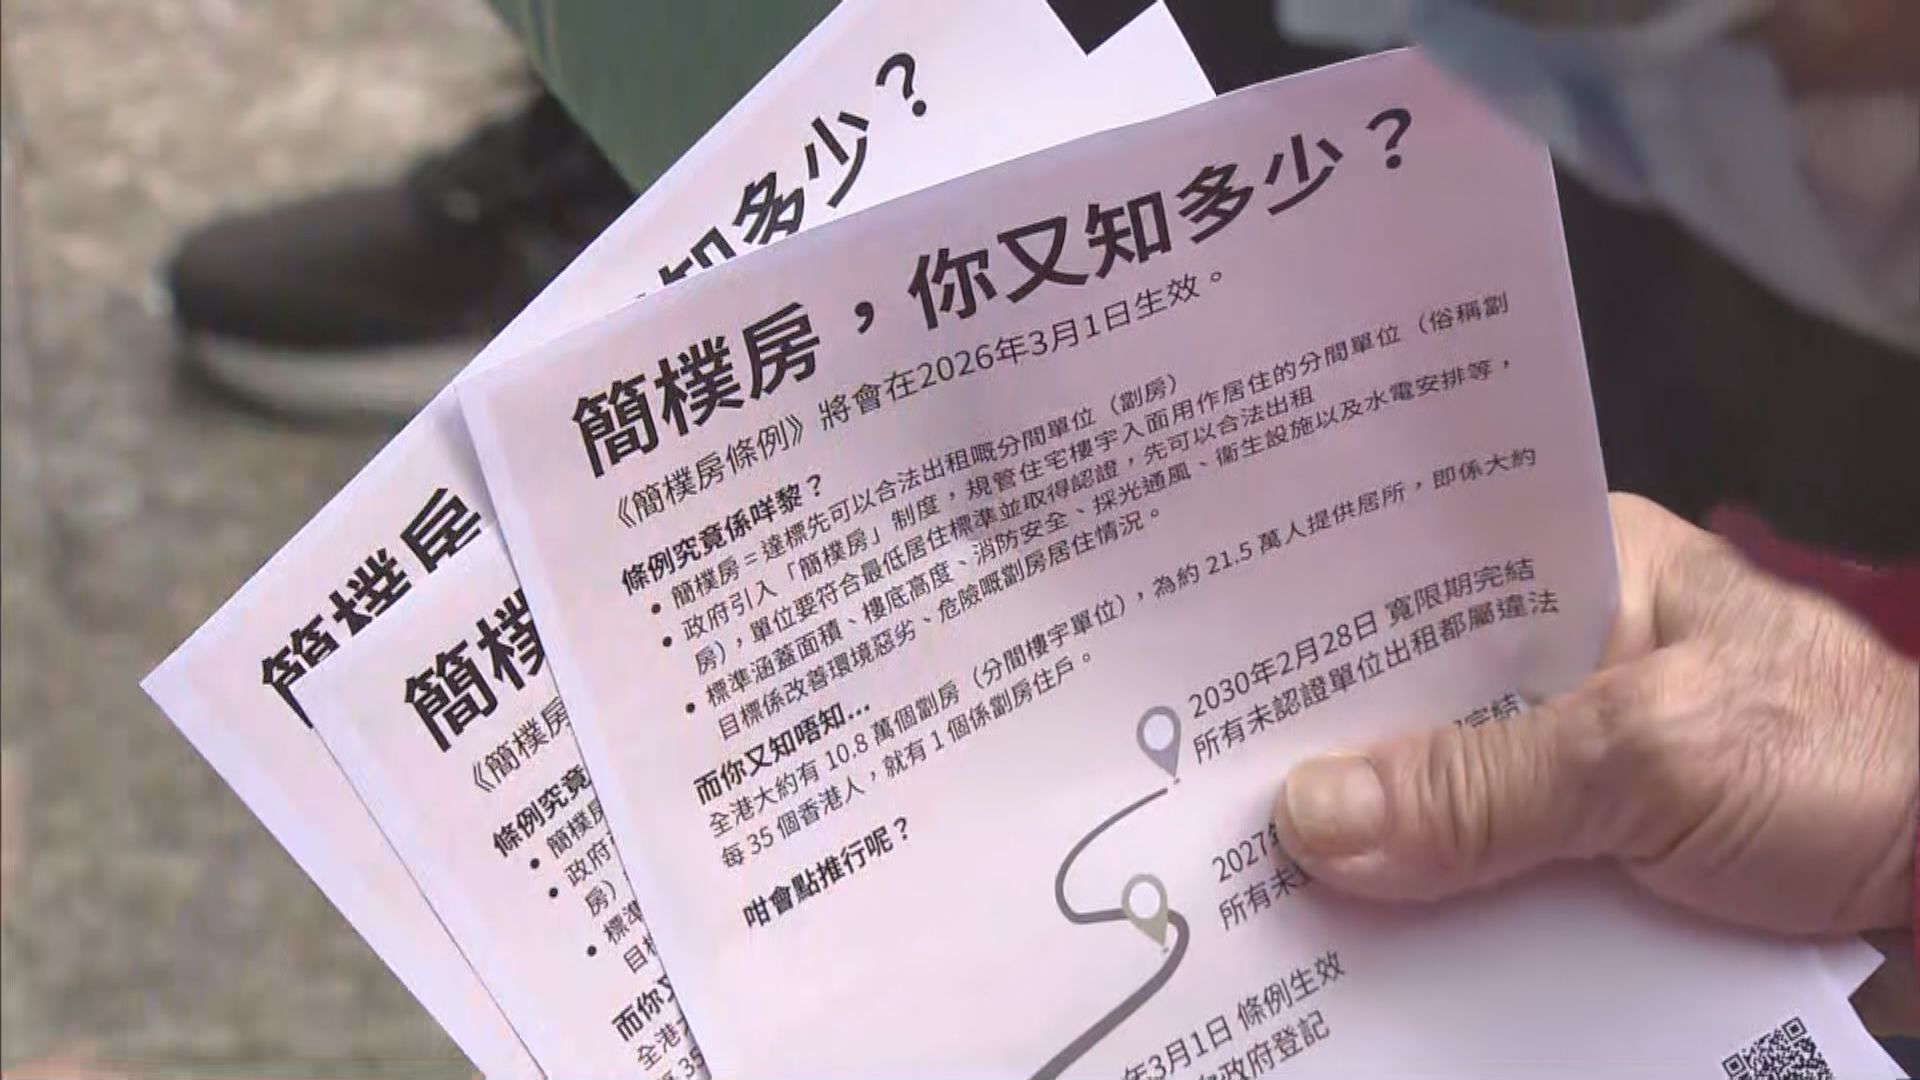 知多少？
簡樸房，你又知多少？
《簡樸房條例》將會在2026年3月1日生效。
條例究竟係咩黎？
• 簡樸房＝達標先可以合法出租嘅分間單位（劏房）
• 政府引入「簡樸房」制度，規管住宅樓宇入面用作居住的分間單位（俗稱劏
房），單位要符合最低居住標準並取得認證，先可以合法出租
• 標準涵蓋面積、樓底高度、消防安全、採光通風、衞生設施以及水電安排等，
目標係改善環境惡劣、危險嘅劏房居住情況。
而你又知唔知...
全港大約有 10.8 萬個劏房（分間樓宇單位），為約 21.5 萬人提供居所，即係大約
每 35 個香港人，就有 1 個係劏房住戶。
咁會點推行呢？
2030年2月28日 寬限期完結
所有未認證單位出租都屬違法
完結
2027年
所有未
年3月1日 條例生效
政府登記
簡樸房
簡樸
《簡樸房
條例究竟
• 簡樸房
• 政府
房）
• 標準
目標
而你又
全港大
每 35